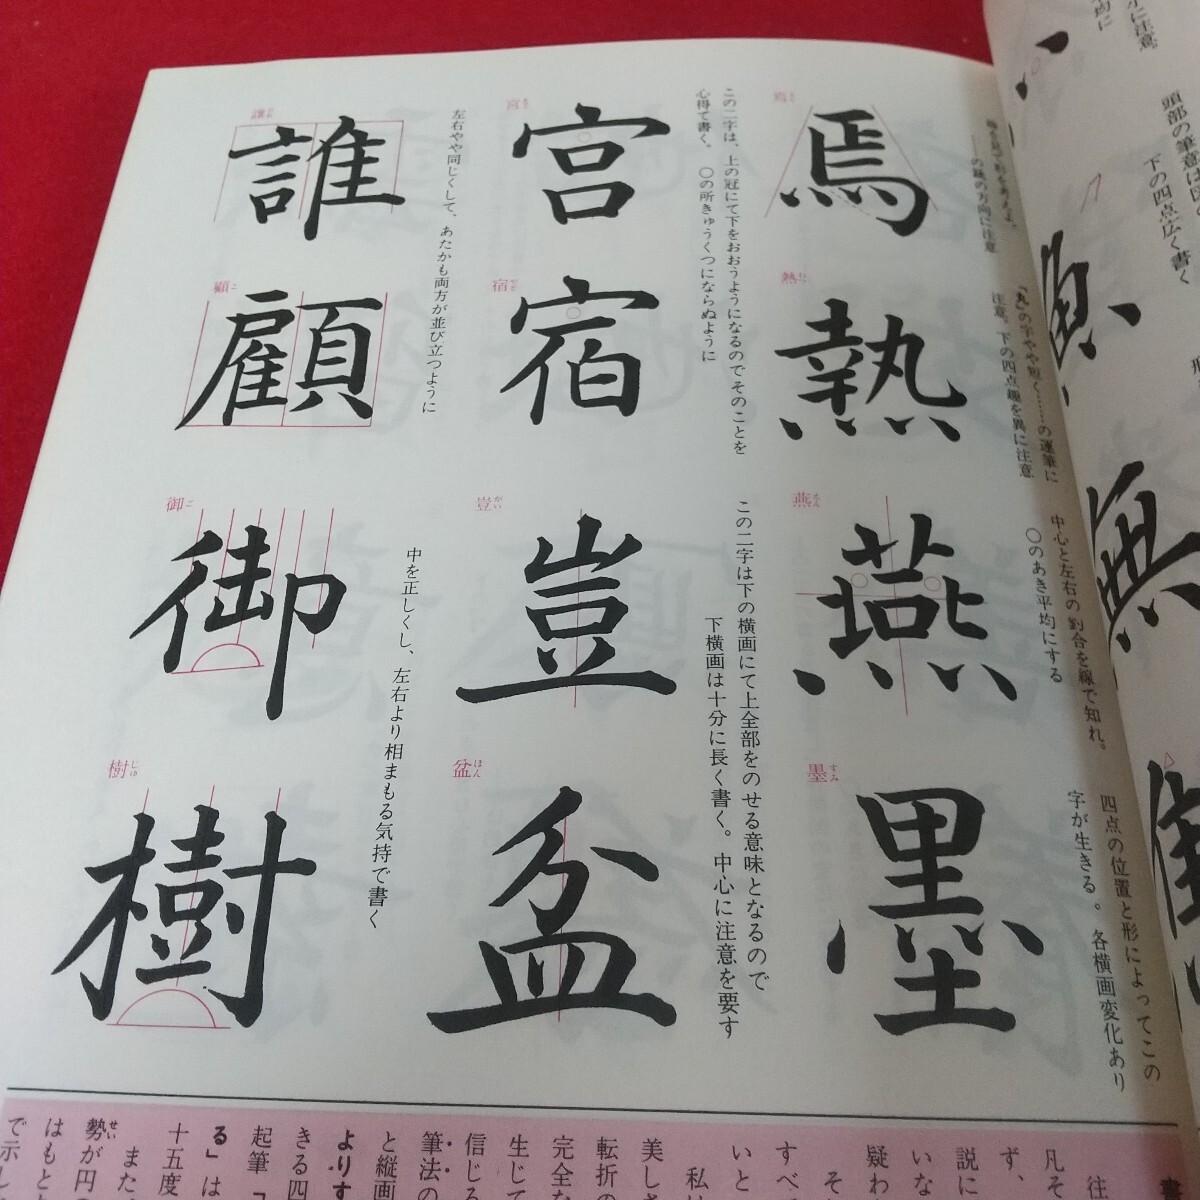 頭部の筆意は
下の四点広く書く
無
焉
焉
の画の方向に注意
熱
熱
「丸」の字やや短く……の運筆に
注意、下の四点趣を異に注意
燕 えん
燕
中心と左右の割合を線で知れ。
〇のあき平均にする
墨 すみ
墨
四点の位置と形によってこの
字が生きる。各横画変化あり
宮
宮
宿
宿
この二字は、上の冠にて下をおおうようになるのでそのことを
心得て書く。〇の所きゅうくつにならぬように
豈 かい
豈
盆 ほん
盆
この二字は下の横画にて上全部をのせる意味となるので
下横画は十分に長く書く。中心に注意を要す
誰
顧 こ
顧
左右やや同じくして、あたかも両方が並び立つように
御 ご
御
樹 じゅ
樹
中を正しくし、左右より相まもる気持で書く
往
凡そ
ず、
説に
いな
疑わ
そ
すべ
いと
私は
美しさ
転折の
完全な
生じて
信じる
筆法の
と縦画
よりす
きる四
起筆「
る」は
十五度
また、
勢が円 せい
はもと
で示し